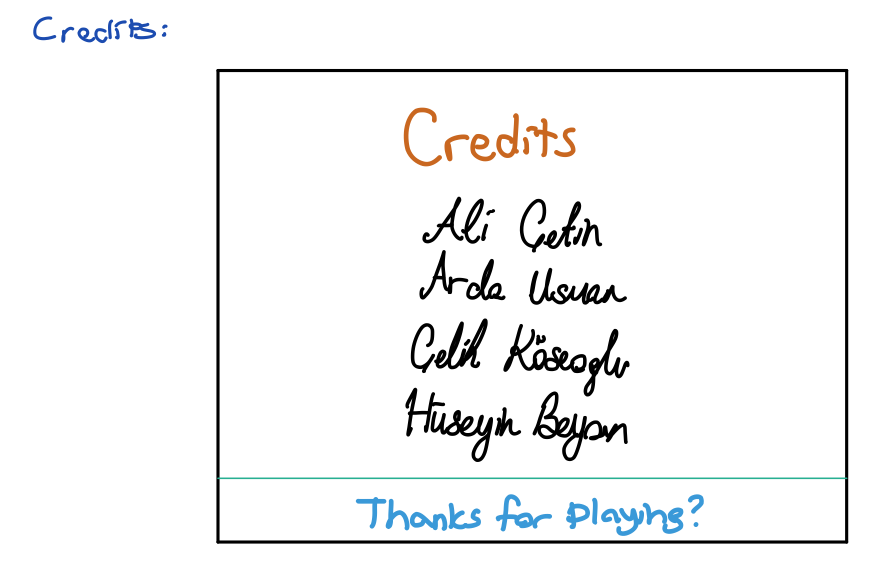 Credits:
Credits
Ali Çetin
Arda Usman
Çelik Köseoglu
Hüseyin Beyan
Thanks for playing?